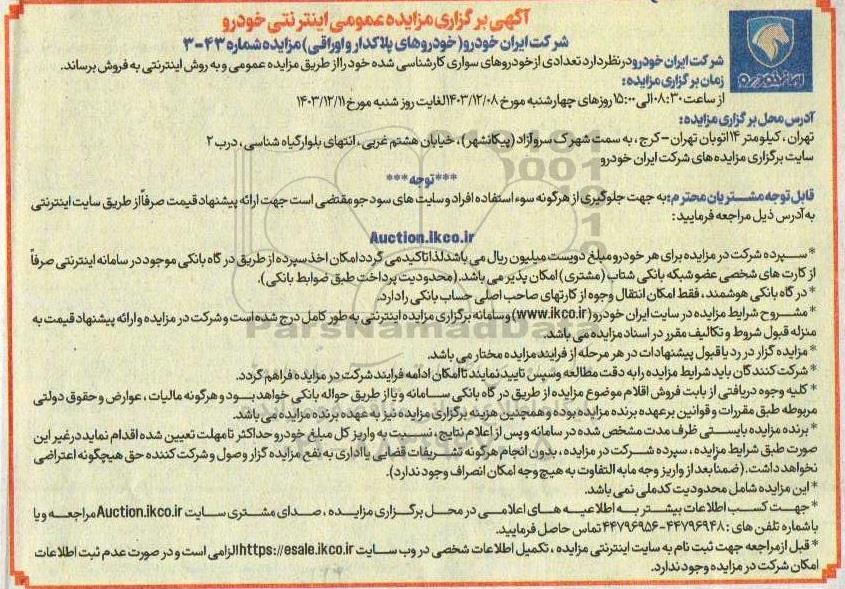 آگهی برگزاری مزایده عمومی اینترنتی خودرو
شرکت ایران خودرو (خودروهای پلاکدار و اوراقی) مزایده شماره ۴۳-۳
ایران خودرو
شرکت ایران خودرو در نظر دارد تعدادی از خودروهای سواری کارشناسی شده خود را از طریق مزایده عمومی و به روش اینترنتی به فروش برساند.
زمان برگزاری مزایده:
از ساعت ۰۸:۳۰ الی ۱۵:۰۰ روزهای چهارشنبه مورخ ۱۴۰۳/۱۲/۰۸ لغایت روز شنبه مورخ ۱۴۰۳/۱۲/۱۱
آدرس محل برگزاری مزایده:
تهران، کیلومتر ۱۴ اتوبان تهران - کرج، به سمت شهرک سروآزاد (پیکانشهر)، خیابان هشتم غربی، انتهای بلوار گیاه شناسی، درب ۲
سایت برگزاری مزایده های شرکت ایران خودرو
***توجه***
قابل توجه مشتریان محترم: به جهت جلوگیری از هرگونه سوء استفاده افراد و سایت های سودجو مقتضی است جهت ارائه پیشنهاد قیمت صرفاً از طریق سایت اینترنتی
به آدرس ذیل مراجعه فرمایید:
Auction.ikco.ir
* سپرده شرکت در مزایده برای هر خودرو مبلغ دویست میلیون ریال می باشد لذا تاکید می گردد امکان اخذ سپرده از طریق درگاه بانکی موجود در سامانه اینترنتی صرفاً
از کارت های شخصی عضو شبکه بانکی شتاب (مشتری) امکان پذیر می باشد. (محدودیت پرداخت طبق ضوابط بانکی).
* درگاه بانکی هوشمند، فقط امکان انتقال وجوه از کارتهای صاحب اصلی حساب بانکی را دارد.
* مشروح شرایط مزایده در سایت ایران خودرو (www.ikco.ir) و سامانه برگزاری مزایده اینترنتی به طور کامل درج شده است و شرکت در مزایده و ارائه پیشنهاد قیمت به
منزله قبول شروط و تکالیف مقرر در اسناد مزایده می باشد.
* مزایده گزار در رد یا قبول پیشنهادات در هر مرحله از فرایند مزایده مختار می باشد.
* شرکت کنندگان باید شرایط مزایده را به دقت مطالعه و سپس تایید نمایند تا امکان ادامه فرایند شرکت در مزایده فراهم گردد.
* کلیه وجوه دریافتی از بابت فروش اقلام موضوع مزایده از طریق درگاه بانکی سامانه و یا از طریق حواله بانکی خواهد بود و هرگونه مالیات، عوارض و حقوق دولتی
مربوطه طبق مقررات و قوانین بر عهده برنده مزایده بوده و همچنین هزینه برگزاری مزایده نیز به عهده برنده مزایده می باشد.
* برنده مزایده بایستی ظرف مدت مشخص شده در سامانه و پس از اعلام نتایج، نسبت به واریز کل مبلغ خودرو حداکثر تا مهلت تعیین شده اقدام نماید در غیر این
صورت طبق شرایط مزایده، سپرده شرکت در مزایده، بدون انجام هرگونه تشریفات قضایی یا اداری به نفع مزایده گزار وصول و شرکت کننده حق هیچگونه اعتراضی
نخواهد داشت. (ضمنا بعد از واریز وجه مابه التفاوت به هیچ وجه امکان انصراف وجود ندارد).
* این مزایده شامل محدودیت کدملی نمی باشد.
* جهت کسب اطلاعات بیشتر به اطلاعیه های اعلامی در محل برگزاری مزایده، صدای مشتری سایت Auction.ikco.ir مراجعه و یا
با شماره تلفن های: ۴۴۷۹۶۹۴۸-۴۴۷۹۶۹۵۶ تماس حاصل فرمایید.
* قبل از مراجعه جهت ثبت نام به سایت اینترنتی مزایده، تکمیل اطلاعات شخصی در وب سایت https://esale.ikco.ir الزامی است و در صورت عدم ثبت اطلاعات
امکان شرکت در مزایده وجود ندارد.
ParsNamadData